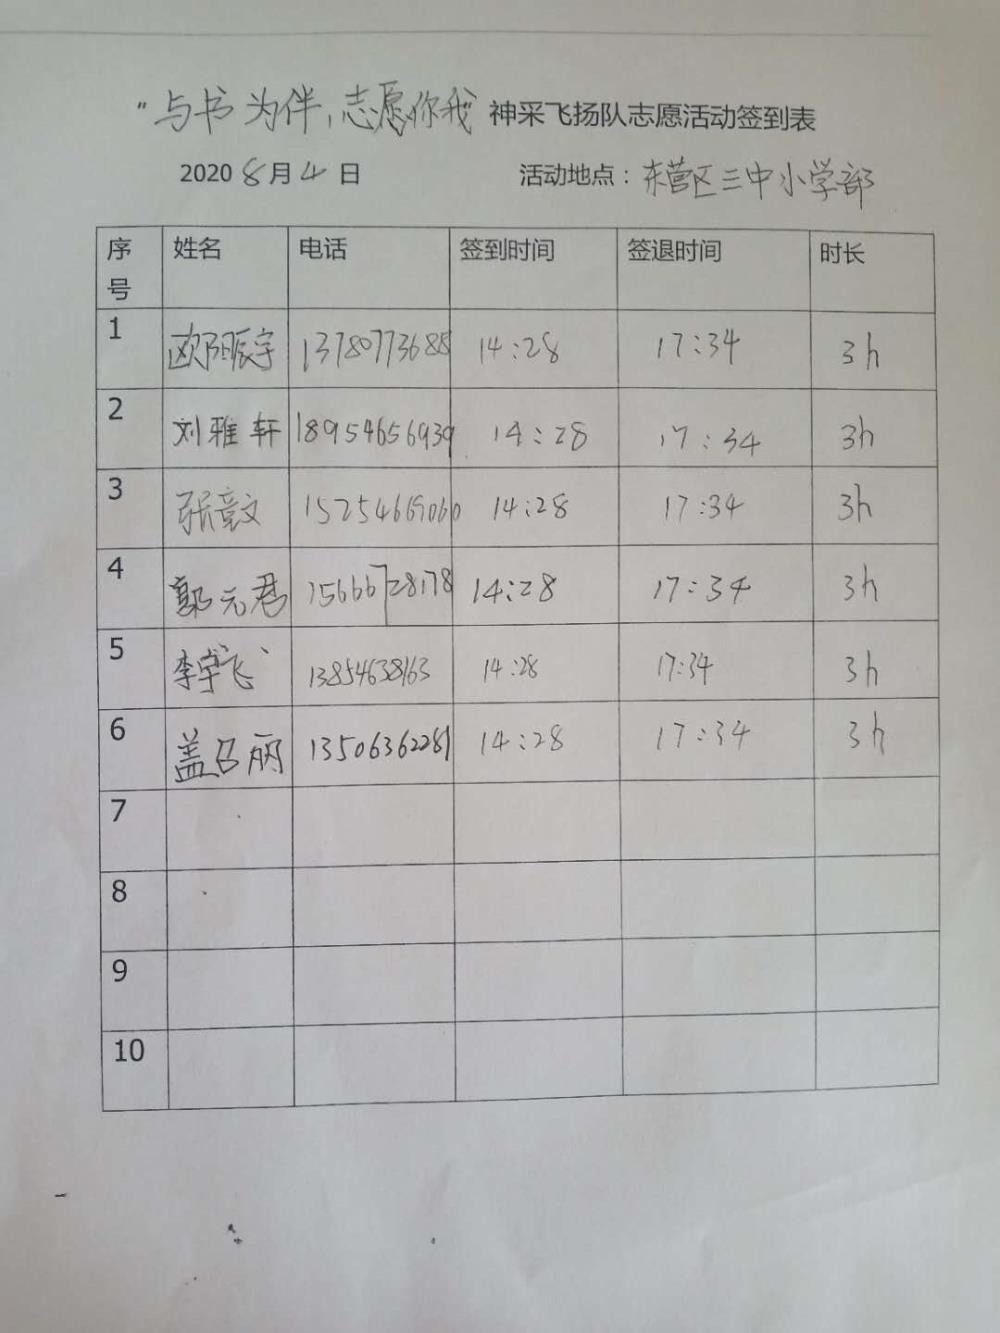 "与书为伴,志愿你我"神采飞扬队志愿活动签到表
2020 8月4日 活动地点：东营区三中小学部
序号 姓名 电话 签到时间 签退时间 时长
1 欧阳宸宇 13780773688 14:28 17:34 3h
2 刘雅轩 18954656939 14:28 17:34 3h
3 张竞文 15254669060 14:28 17:34 3h
4 郭元君 15666728178 14:28 17:34 3h
5 李宇飞 13854638163 14:28 17:34 3h
6 盖吕丽 13506362281 14:28 17:34 3h
7
8
9
10